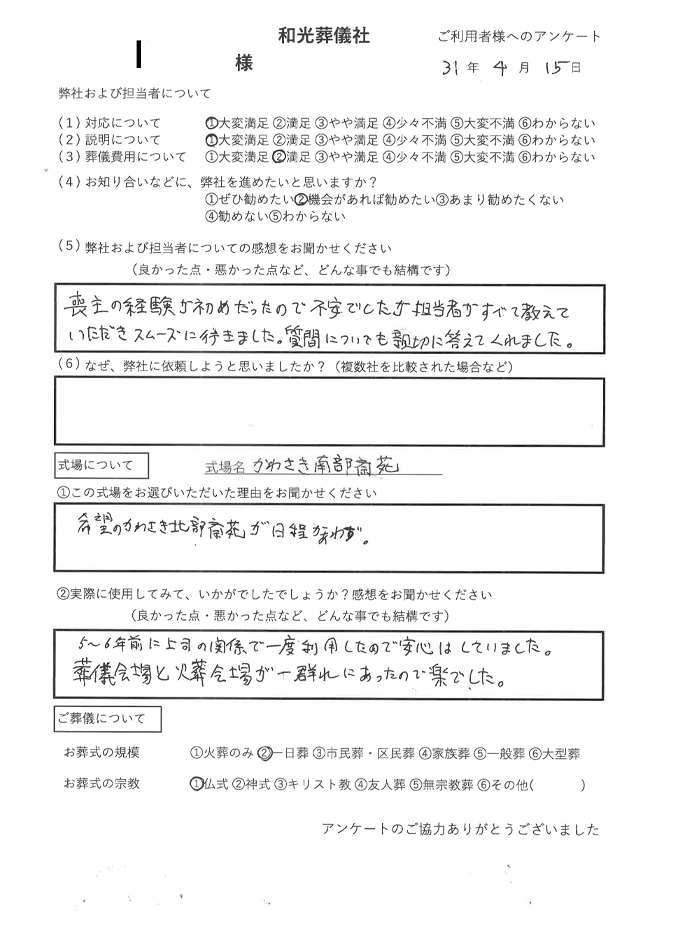 和光葬儀社
ご利用者様へのアンケート
様
31年 4月 15日
弊社および担当者について
(1) 対応について ①大変満足 ②満足 ③やや満足 ④少々不満 ⑤大変不満 ⑥わからない
(2) 説明について ①大変満足 ②満足 ③やや満足 ④少々不満 ⑤大変不満 ⑥わからない
(3) 葬儀費用について ①大変満足 ②満足 ③やや満足 ④少々不満 ⑤大変不満 ⑥わからない
(4) お知り合いなどに、弊社を進めたいと思いますか？
①ぜひ勧めたい②機会があれば勧めたい③あまり勧めたくない
④勧めない⑤わからない
(5) 弊社および担当者についての感想をお聞かせください
（良かった点・悪かった点など、どんな事でも結構です）
喪主の経験が初めだったので不安でしたが担当者がすべて教えて
いただきスムーズに行きました。質問についても親切に答えてくれました。
(6) なぜ、弊社に依頼しようと思いましたか？（複数社を比較された場合など）
式場について 式場名 かわさき南部斎苑
①この式場をお選びいただいた理由をお聞かせください
希望のかわさき北部斎苑が日程があわず。
②実際に使用してみて、いかがでしたでしょうか？感想をお聞かせください
（良かった点・悪かった点など、どんな事でも結構です）
5～6年前に上司の関係で一度利用したので安心はしていました。
葬儀会場と火葬会場が一群れにあったので楽でした。
ご葬儀について
お葬式の規模 ①火葬のみ ②一日葬 ③市民葬・区民葬 ④家族葬 ⑤一般葬 ⑥大型葬
お葬式の宗教 ①仏式 ②神式 ③キリスト教 ④友人葬 ⑤無宗教葬 ⑥その他( )
アンケートのご協力ありがとうございました